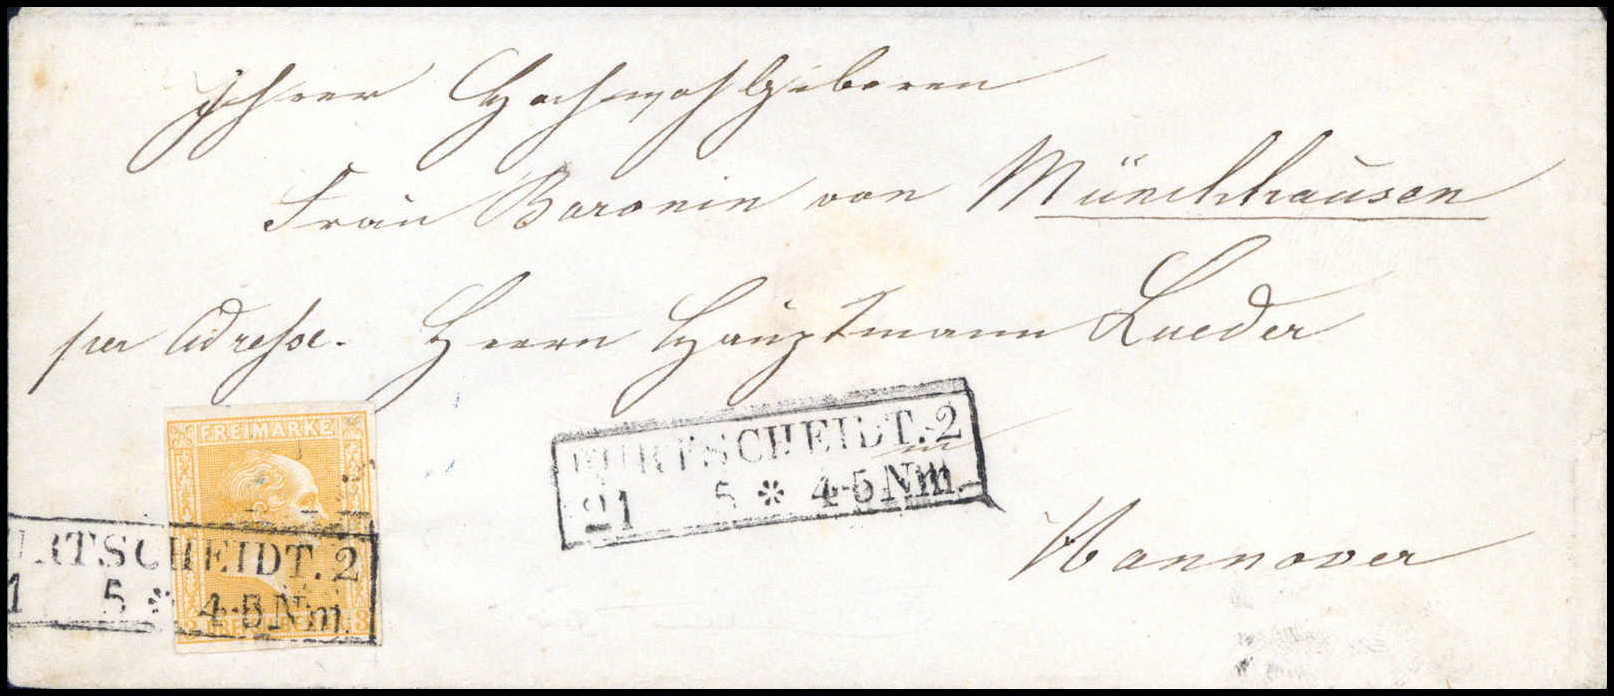 Ihrer Hochwohlgeboren
Frau Baronin von Münchhausen
per Adresse. Herrn Hauptmann Lueder
FREIMARKE
BURTSCHEIDT. 2
21 5 * 4-5 Nm.
Hannover
URTSCHEIDT. 2
1 5 * 4-5 Nm.
3 3